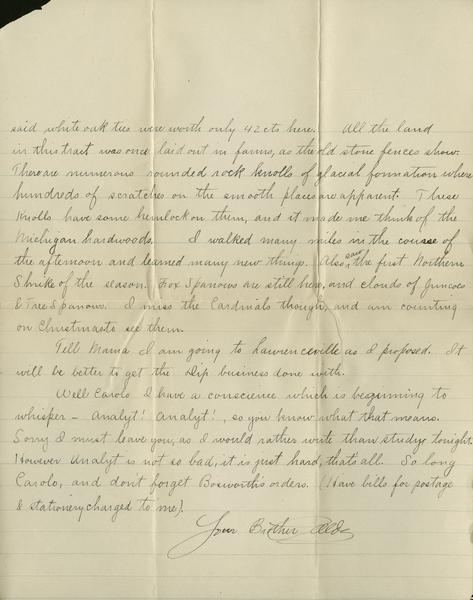 said white oak ties were worth only 42 cts here. All the land
in this tract was once laid out in farms, as the old stone fences show.
There are numerous rounded rock knolls of glacial formation where
hundreds of scratches on the smooth places are apparent. These
Knolls have some hemlock on them, and it made me think of the
Michigan hardwoods. I walked many miles in the course of
the afternoon and learned many new things. Also saw the first Northern
Shrike of the season. Fox Sparrows are still here, and clouds of Juncoes
& Tree Sparrows. I miss the Cardinals though, and am counting
on Christmas to see them.
Tell Mama I am going to Lawrenceville as I proposed. It
will be better to get the Dip business done with.
Well Carolo I have a conscience which is beginning to
whisper - Analyt! Analyt!, so you know what that means.
Sorry I must leave you, as I would rather write than study tonight.
However Analyt is not so bad, it is just hard, that's all. So long
Carolo, and don't forget Bosworth's orders. (Have bills for postage
& stationery charged to me).
Your Brother Aldo